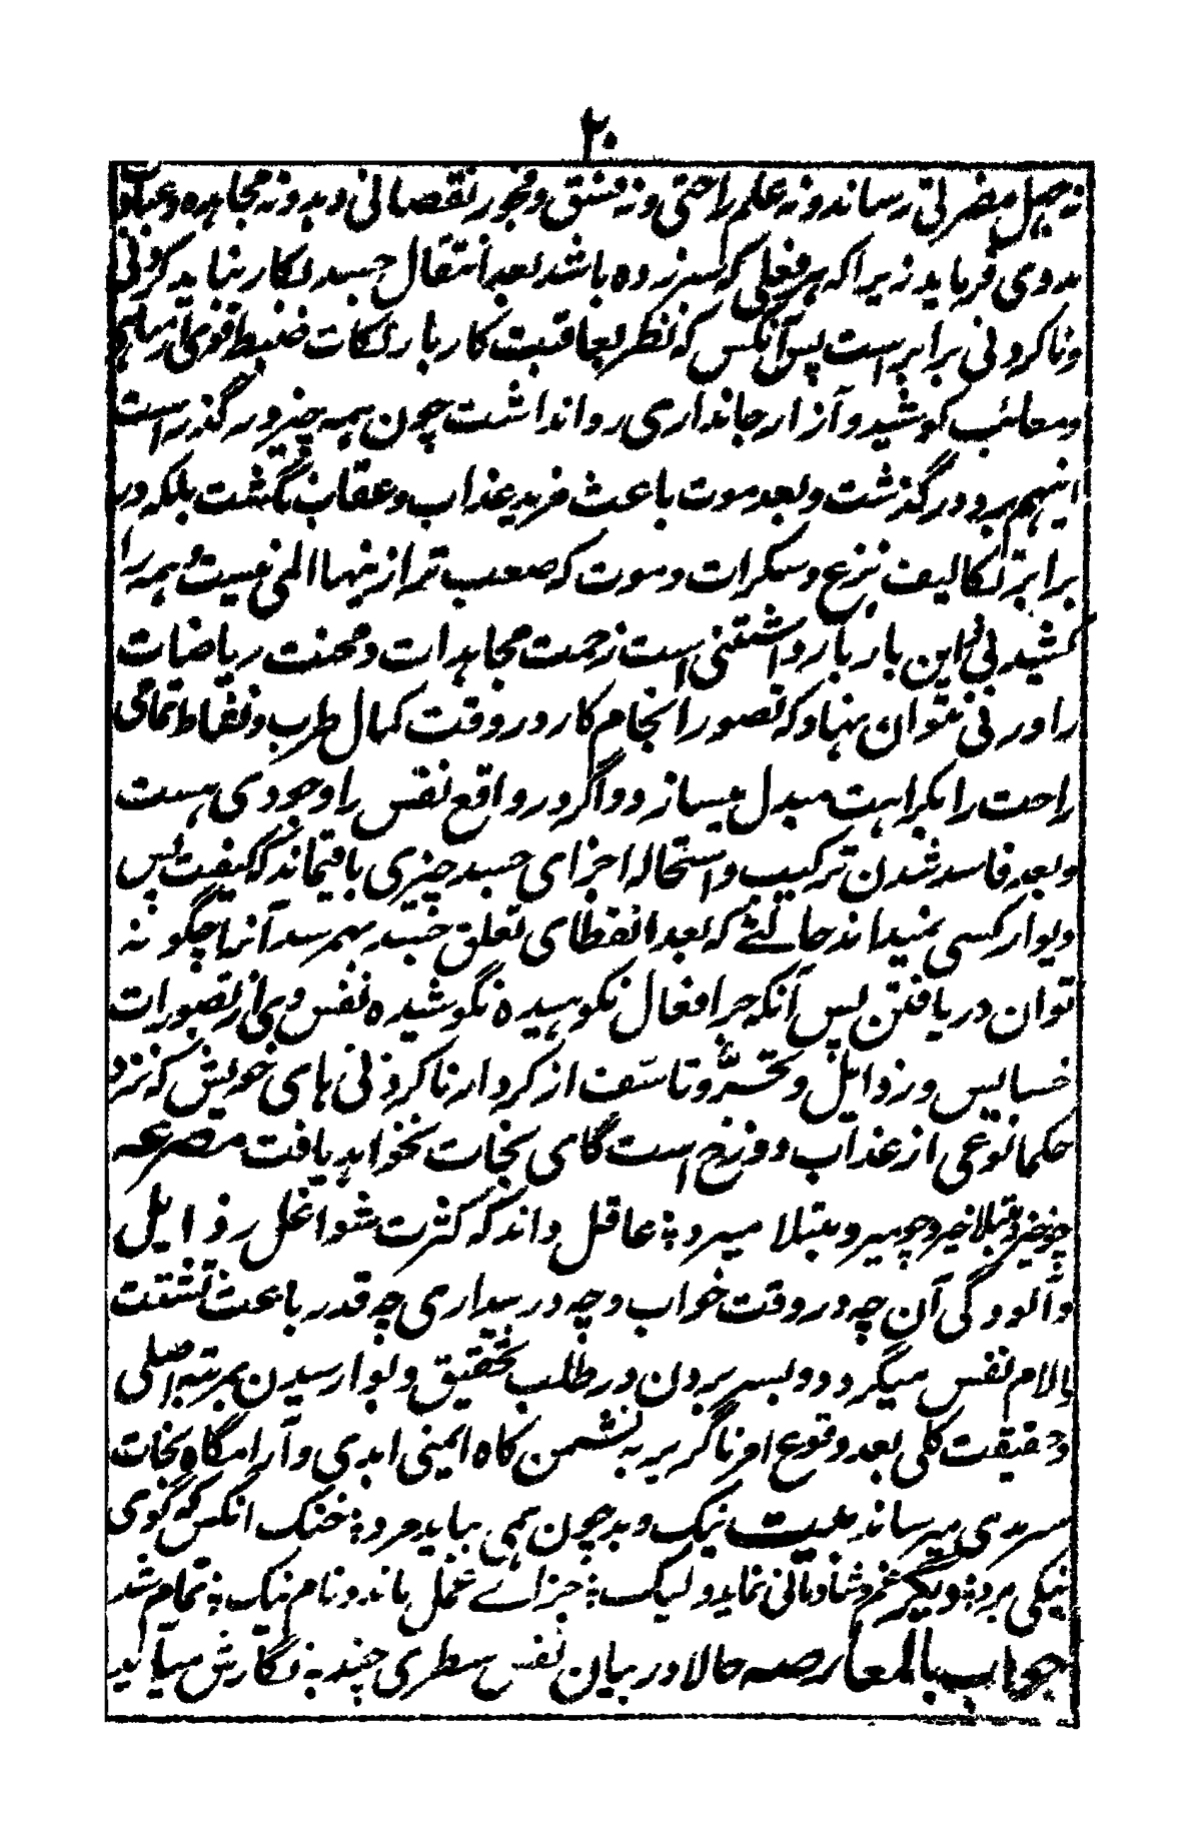 ۲۰
نه جهل مضرتی رساند و نه علم راحتی و نه فسق و فجور نقصانی دهد و نه مجاهده و عبادت
مددی فرماید زیرا که هر فعلی که سرزده باشد بعد انتقال جسد بکار نیاید کردنی
و ناکردنی برابر است پس آنکس که نظر بعاقبت کار بارتکات ضبط قوی از
و معائب کوشید و آزار جانداری روا نداشت چون همه چیز درگذر است
اینهم برو درگذشت و بعد موت باعث مزید عذاب و عقاب نگشت بلکه در
برابر تکالیف نزع و سکرات و موت که صعب تر ازینها المی نیست و همه را
کشیدنی این بار بار داشتنی است زحمت مجاهدات و محنت ریاضات
را وزنی نتوان نهاد که تصور انجام کار در وقت کمال طرب و نشاط تمامی
راحت را بکراهت مبدل میسازد و اگر در واقع نفس را وجودی هست
و بعد فاسد شدن ترکیب و استحاله اجزای جسد چیزی باقیماند که کیفیت پس
دیوار کسی نمیداند حالتے که بعد انقطاع تعلق جسد بهم رسد آنرا چگونه
توان دریافتن پس آنکه جز افعال نکوهیده نکوشیده نفس وی از تصورات
خسایس و رذایل و تحسر و تاسف از کردار ناکردنی های خویش که نزد
حکما نوعی از عذاب دوزخ است گاهی نجات نخواهد یافت مصرعه
چو خیزد مبتلا خیزد چو میرد مبتلا میرد ؛ عاقل داند که کثرت شواغل رذایل
و آلودگی آن چه در وقت خواب و چه در بیداری چه قدر باعث تشتت
و آلام نفس میگردد و بسر بردن در طلب تحقیق و لوا رسیدن بمرتبه اصلی
و حقیقت کلی بعد وقوع امر ناگزیر به نشمن گاه ایمنی ابدی و آرامگاه نجات
سرمدی میرساند بیت نیک و بد چون همی بباید مرد ؛ خنک آنکس که گوی
نیکی برد ؛ دیگر غم و شادمانی نماند ولیک ؛ جزاے عمل ماند و نام نیک ؛ تمام شد
جواب بالمعارضه حالا در بیان نفس سطری چند به نگارش میآید